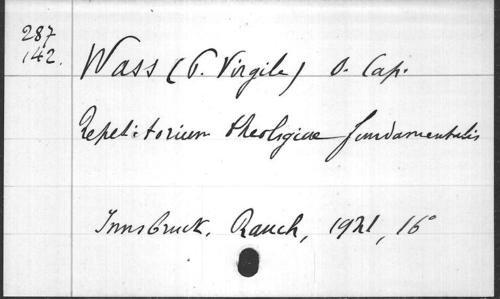 287
142.
Wass (P. Virgile) O. Cap.
Repetitorium theologiae fundamentalis
Innsbruck. Rauch, 1921, 16°